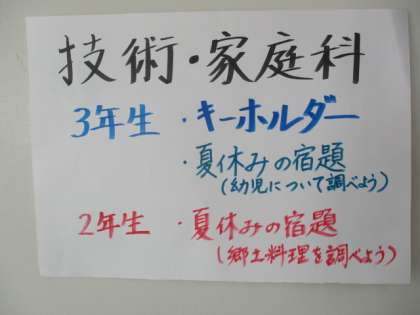 技術・家庭科
3年生 ・キーホルダー
・夏休みの宿題
(幼児について調べよう)
2年生 ・夏休みの宿題
(郷土料理を調べよう)